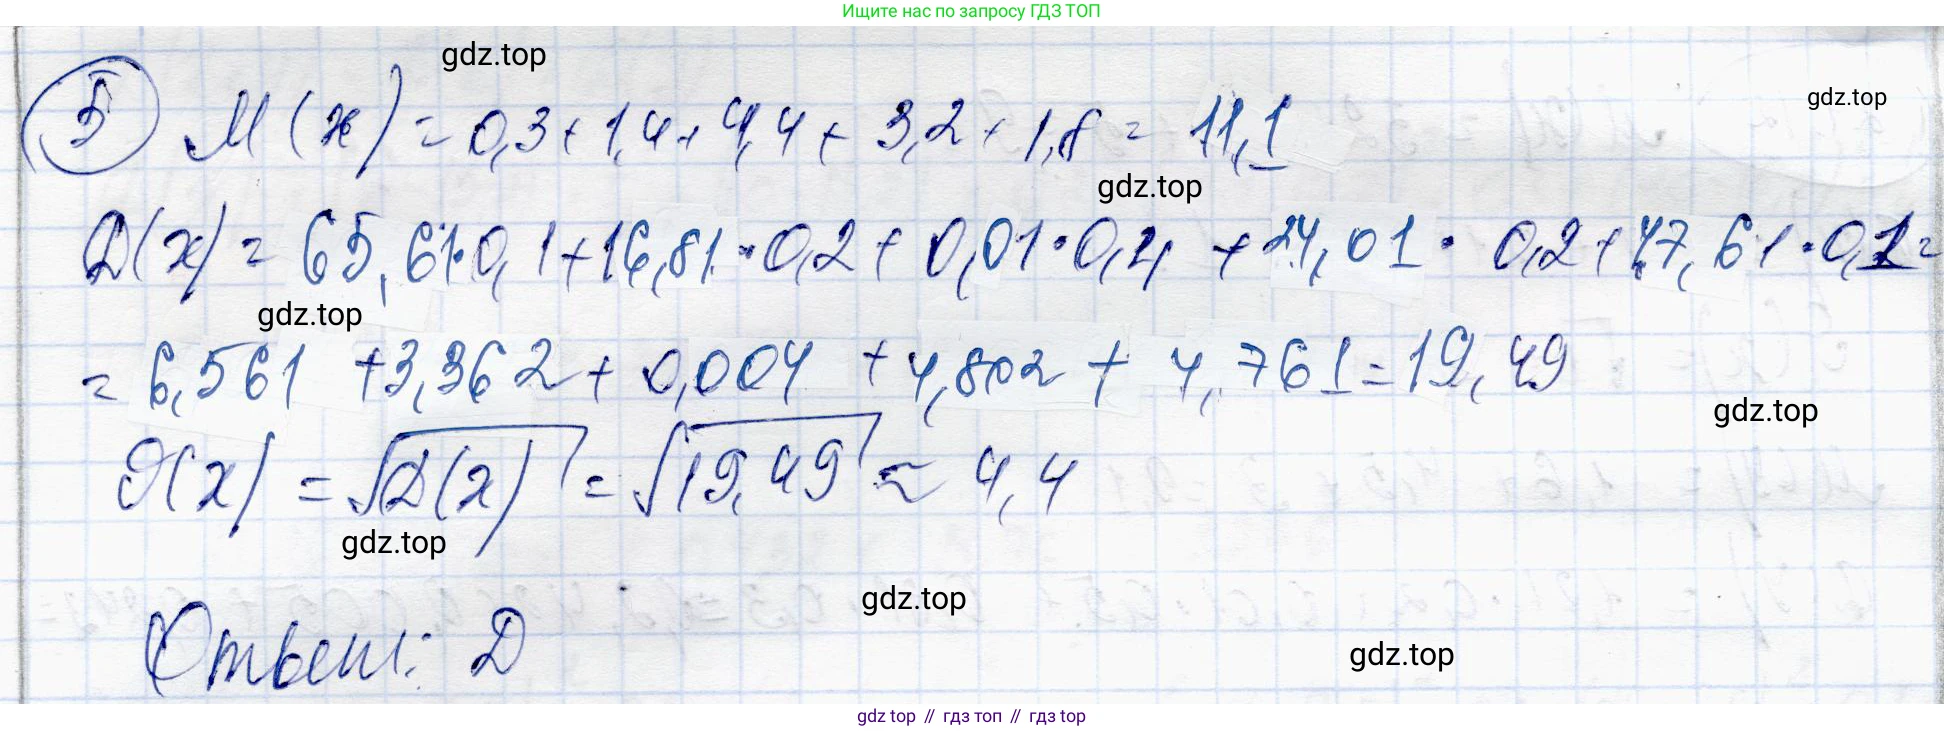 Ищите нас по запросу ГДЗ ТОП
gdz.top
gdz.top
5 M(x) = 0,3 + 1,4 + 4,4 + 3,2 + 1,8 = 11,1
gdz.top
D(x) = 65,61·0,1 + 16,81·0,2 + 0,01·0,4 + 24,01·0,2 + 47,61·0,1 =
gdz.top
= 6,561 + 3,362 + 0,004 + 4,802 + 4,761 = 19,49
gdz.top
σ(x) = √D(x) = √19,49 ≈ 4,4
gdz.top
gdz.top
Ответ: D
gdz.top
gdz top // гдз топ // гдз top